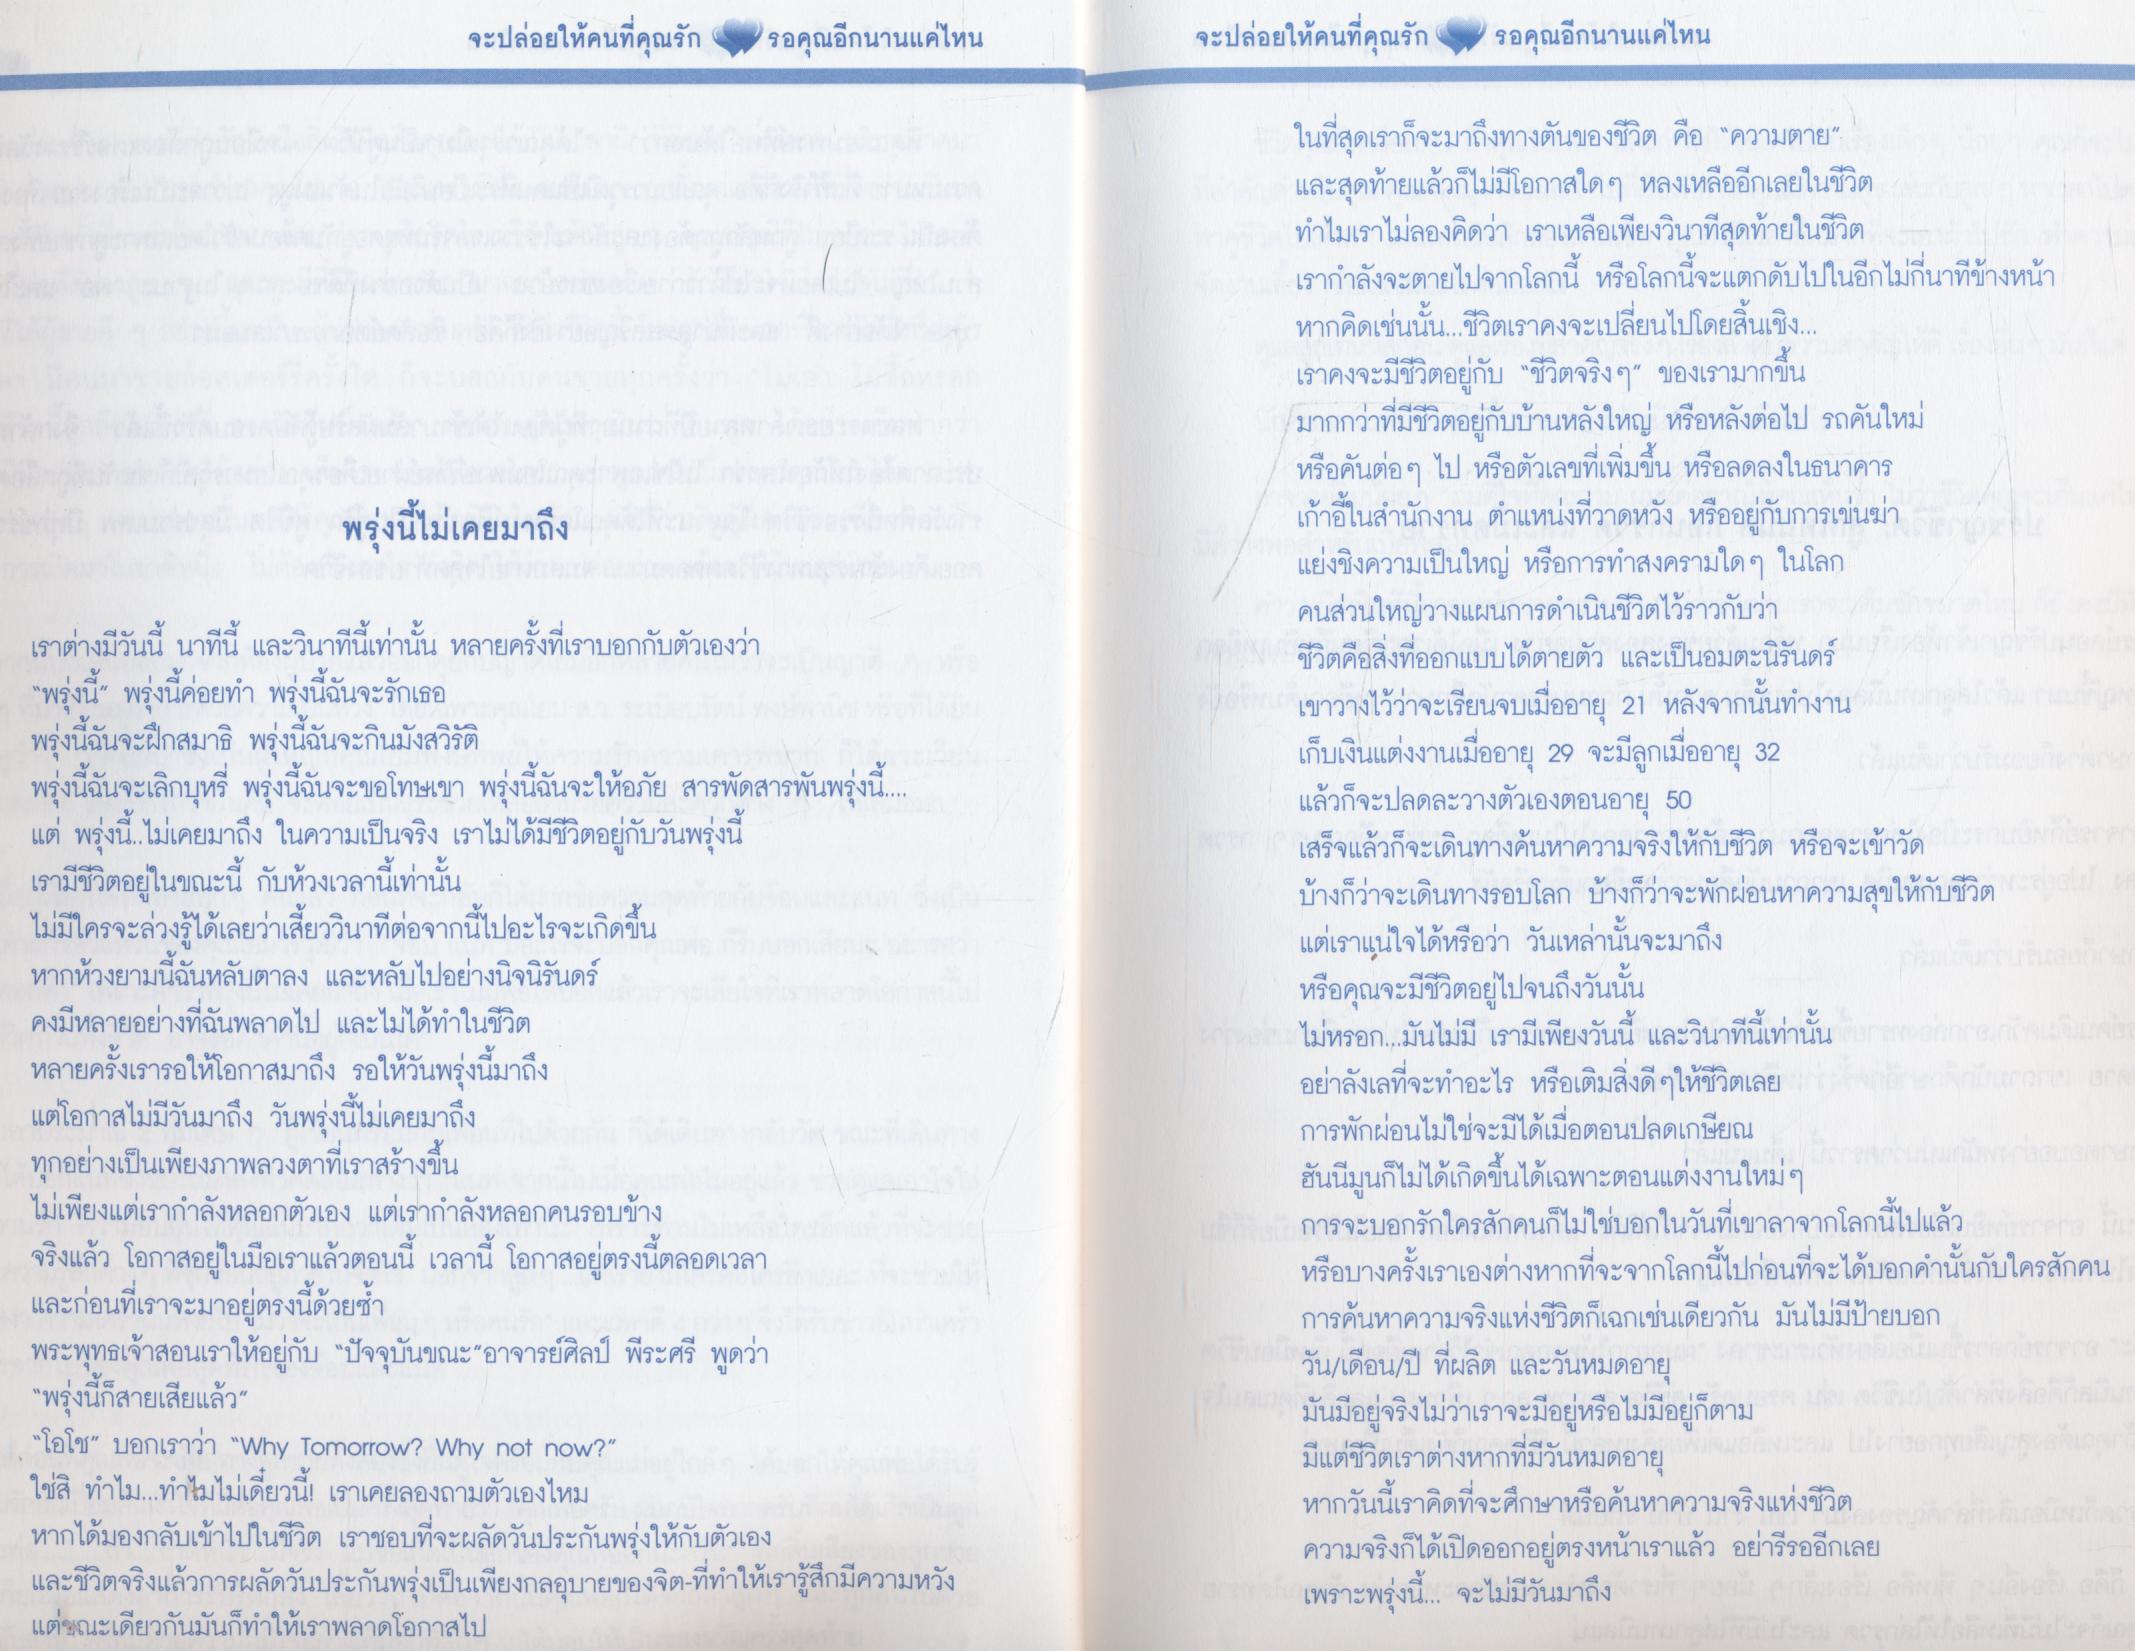 จะปล่อยให้คนที่คุณรัก รอคุณอีกนานแค่ไหน
พรุ่งนี้ไม่เคยมาถึง
เราต่างมีวันนี้ นาทีนี้ และวินาทีนี้เท่านั้น หลายครั้งที่เราบอกกับตัวเองว่า
“พรุ่งนี้” พรุ่งนี้ค่อยทำ พรุ่งนี้ฉันจะรักเธอ
พรุ่งนี้ฉันจะฝึกสมาธิ พรุ่งนี้ฉันจะกินมังสวิรัติ
พรุ่งนี้ฉันจะเลิกบุหรี่ พรุ่งนี้ฉันจะขอโทษเขา พรุ่งนี้ฉันจะให้อภัย สารพัดสารพันพรุ่งนี้....
แต่ พรุ่งนี้..ไม่เคยมาถึง ในความเป็นจริง เราไม่ได้มีชีวิตอยู่กับวันพรุ่งนี้
เรามีชีวิตอยู่ในขณะนี้ กับห้วงเวลานี้เท่านั้น
ไม่มีใครจะล่วงรู้ได้เลยว่าเสี้ยววินาทีต่อจากนี้ไปอะไรจะเกิดขึ้น
หากห้วงยามนี้ฉันหลับตาลง และหลับไปอย่างนิจนิรันดร์
คงมีหลายอย่างที่ฉันพลาดไป และไม่ได้ทำในชีวิต
หลายครั้งเรารอให้โอกาสมาถึง รอให้วันพรุ่งนี้มาถึง
แต่โอกาสไม่มีวันมาถึง วันพรุ่งนี้ไม่เคยมาถึง
ทุกอย่างเป็นเพียงภาพลวงตาที่เราสร้างขึ้น
ไม่เพียงแต่เรากำลังหลอกตัวเอง แต่เรากำลังหลอกคนรอบข้าง
จริงแล้ว โอกาสอยู่ในมือเราแล้วตอนนี้ เวลานี้ โอกาสอยู่ตรงนี้ตลอดเวลา
และก่อนที่เราจะมาอยู่ตรงนี้ด้วยซ้ำ
พระพุทธเจ้าสอนเราให้อยู่กับ “ปัจจุบันขณะ”อาจารย์ศิลป์ พีระศรี พูดว่า
“พรุ่งนี้ก็สายเสียแล้ว”
“โอโช” บอกเราว่า “Why Tomorrow? Why not now?”
ใช่สิ ทำไม...ทำไมไม่เดี๋ยวนี้! เราเคยลองถามตัวเองไหม
หากได้มองกลับเข้าไปในชีวิต เราชอบที่จะผลัดวันประกันพรุ่งให้กับตัวเอง
และชีวิตจริงแล้วการผลัดวันประกันพรุ่งเป็นเพียงกลอุบายของจิต-ที่ทำให้เรารู้สึกมีความหวัง
แต่ขณะเดียวกันมันก็ทำให้เราพลาดโอกาสไป
จะปล่อยให้คนที่คุณรัก รอคุณอีกนานแค่ไหน
ในที่สุดเราก็จะมาถึงทางตันของชีวิต คือ “ความตาย”
และสุดท้ายแล้วก็ไม่มีโอกาสใดๆ หลงเหลืออีกเลยในชีวิต
ทำไมเราไม่ลองคิดว่า เราเหลือเพียงวินาทีสุดท้ายในชีวิต
เรากำลังจะตายไปจากโลกนี้ หรือโลกนี้จะแตกดับไปในอีกไม่กี่นาทีข้างหน้า
หากคิดเช่นนั้น...ชีวิตเราคงจะเปลี่ยนไปโดยสิ้นเชิง...
เราคงจะมีชีวิตอยู่กับ “ชีวิตจริงๆ” ของเรามากขึ้น
มากกว่าที่มีชีวิตอยู่กับบ้านหลังใหญ่ หรือหลังต่อไป รถคันใหม่
หรือคันต่อๆ ไป หรือตัวเลขที่เพิ่มขึ้น หรือลดลงในธนาคาร
เก้าอี้ในสำนักงาน ตำแหน่งที่วาดหวัง หรืออยู่กับการเข่นฆ่า
แย่งชิงความเป็นใหญ่ หรือการทำสงครามใดๆ ในโลก
คนส่วนใหญ่วางแผนการดำเนินชีวิตไว้ราวกับว่า
ชีวิตคือสิ่งที่ออกแบบได้ตายตัว และเป็นอมตะนิรันดร์
เขาวางไว้ว่าจะเรียนจบเมื่ออายุ 21 หลังจากนั้นทำงาน
เก็บเงินแต่งงานเมื่ออายุ 29 จะมีลูกเมื่ออายุ 32
แล้วก็จะปลดละวางตัวเองตอนอายุ 50
เสร็จแล้วก็จะเดินทางค้นหาความจริงให้กับชีวิต หรือจะเข้าวัด
บ้างก็ว่าจะเดินทางรอบโลก บ้างก็ว่าจะพักผ่อนหาความสุขให้กับชีวิต
แต่เราแน่ใจได้หรือว่า วันเหล่านั้นจะมาถึง
หรือคุณจะมีชีวิตอยู่ไปจนถึงวันนั้น
ไม่หรอก...มันไม่มี เรามีเพียงวันนี้ และวินาทีนี้เท่านั้น
อย่าลังเลที่จะทำอะไร หรือเติมสิ่งดีๆให้ชีวิตเลย
การพักผ่อนไม่ใช่จะมีได้เมื่อตอนปลดเกษียณ
ฮันนีมูนก็ไม่ได้เกิดขึ้นได้เฉพาะตอนแต่งงานใหม่ๆ
การจะบอกรักใครสักคนก็ไม่ใช่บอกในวันที่เขาลาจากโลกนี้ไปแล้ว
หรือบางครั้งเราเองต่างหากที่จะจากโลกนี้ไปก่อนที่จะได้บอกคำนั้นกับใครสักคน
การค้นหาความจริงแห่งชีวิตก็เฉกเช่นเดียวกัน มันไม่มีป้ายบอก
วัน/เดือน/ปี ที่ผลิต และวันหมดอายุ
มันมีอยู่จริงไม่ว่าเราจะมีอยู่หรือไม่มีอยู่ก็ตาม
มีแต่ชีวิตเราต่างหากที่มีวันหมดอายุ
หากวันนี้เราคิดที่จะศึกษาหรือค้นหาความจริงแห่งชีวิต
ความจริงก็ได้เปิดออกอยู่ตรงหน้าเราแล้ว อย่ารีรออีกเลย
เพราะพรุ่งนี้... จะไม่มีวันมาถึง